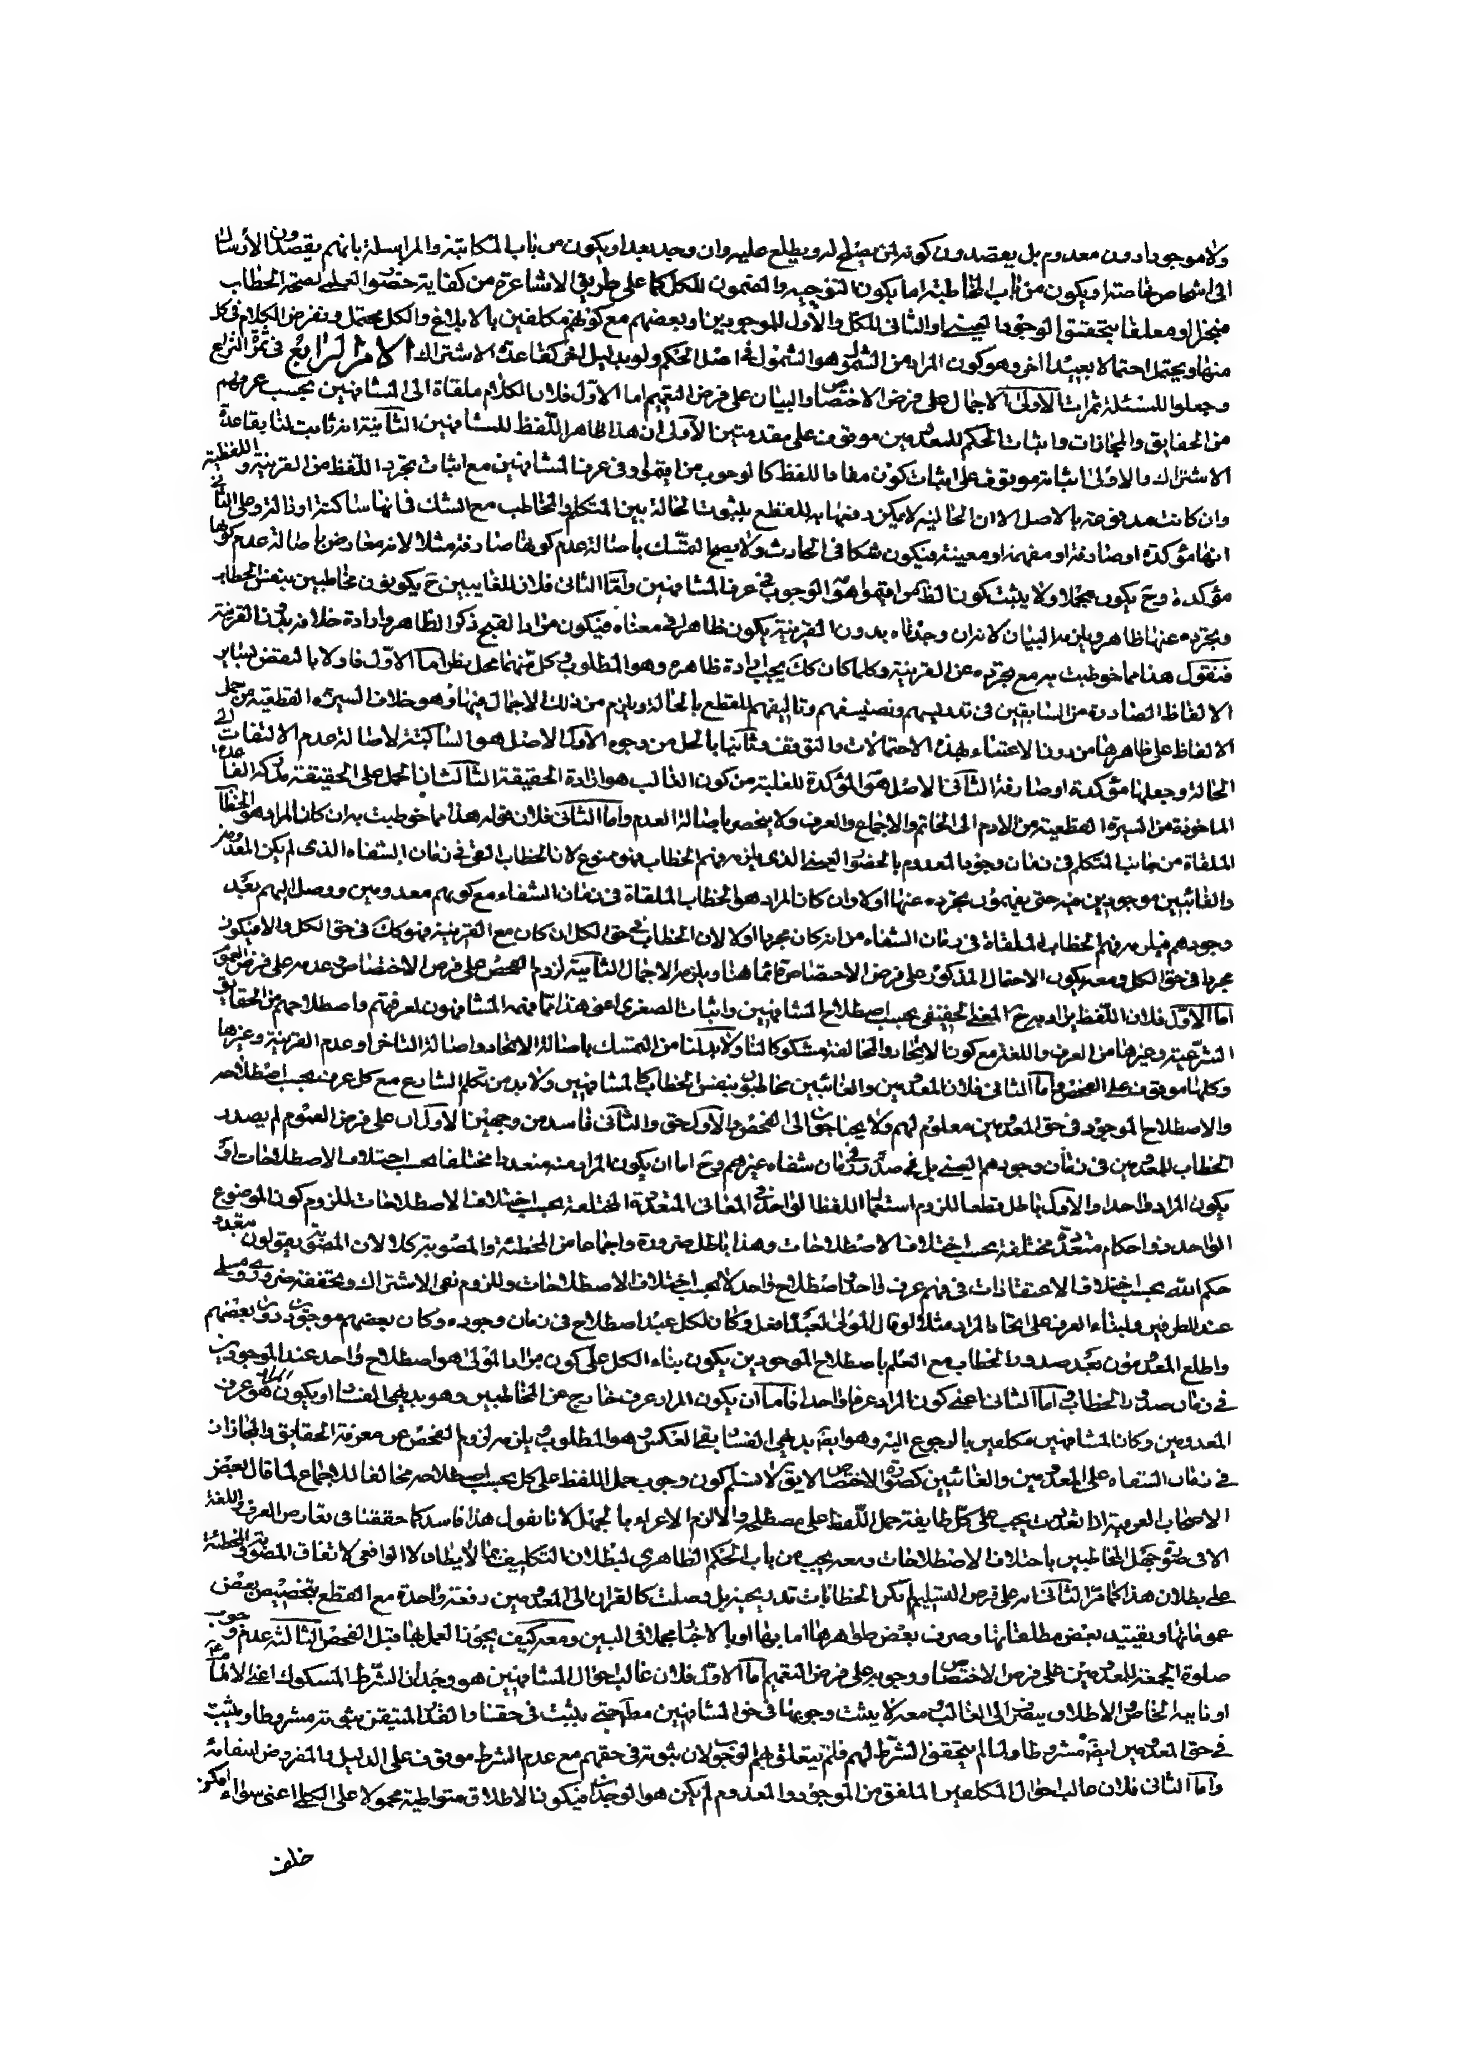 ولا موجود دون معدوم بل يقصدون كونه لمن يصلح له ويطلع عليه وان وجد بعد او يكون من باب المكاتبة والمراسلة بانهم يقصدون الارسال
الى اشخاص خاصة او يكون من باب المخاطبة اما يكون التوجيه والمضمون للكل كما على طريق الاشاعرة من كفاية حضور العلمي لصحة الخطاب
منجزا ومعلقا بتحقق الوجود او الثاني للكل والأول للموجودين او بعضهم مع كونهم مكلفين بالابلاغ والكل محتمل ونفرض الكلام في كل
منها ويحتمل احتمالا بعيدا آخر وهو كون المراد من الشمول هو الشمول في اصل الحكم ولو بدليل آخر كقاعدة الاشتراك الامر الرابع في ثمر النزاع
وجعلوا للمسئلة ثمرات الأولى الاجمال على فرض الاختصاص والبيان على فرض التعميم اما الأول فلان الكلام ملقاة الى المشافهين بحسب عرفهم
من الحقايق والمجازات واثبات الحكم للمعدومين موقوف على مقدمتين الأولى ان هذا ظاهر اللفظ للمشافهين الثانية انه ثابت لنا بقاعدة
الاشتراك والأولى اثباته موقوف على اثبات كون مفاد اللفظ كالوجوب من اقيموا في عرف المشافهين مع اثبات تجرد اللفظ من القرينة واللفظية
وان كانت مدفوعة بالاصل الا ان الحالية لا يمكن دفعها به للقطع بثبوت الحالة بين المتكلم والمخاطب مع الشك في انها ساكتة او
انها مؤكدة او صادفة او مفهمة او معينة فيكون شكا في الحادث ولا يصح التمسك باصالة عدم كونها صادفة مثلا لانه معارض باصالة عدم كونها
مؤكدة وح يكون مجملا ولا يثبت كون لفظ اقيموا هو الوجوب في عرف المشافهين واما الثاني فلان للغايبين ح يكونون مخاطبين بنفس الخطاب
وتجرده عنها ظاهر ويلزمه البيان لانه ان وجدناه بدون القرينة يكون ظاهرا في معناه فيكون مرادا لقبح ذكر الظاهر وارادة خلافه بدون القرينة
فنقول هذا مما خوطبت به مع تجرده عن القرينة وكلما كان كك يجب ارادة ظاهره وهو المطلوب وفي كل منهما محل نظر اما الأول فاولا بالنقض بساير
الالفاظ الصادرة من السابقين في تدريسهم وتصنيفهم وتاليفهم للقطع بالحالة ويلزم من ذلك الاجمال فيها وهو خلاف السيرة القطعية من حمل
الالفاظ على ظاهرها من دون الاعتناء بهذه الاحتمالات والتوقف وثانيا بالحل من وجوه الأول الاصل هو الساكتة لاصالة عدم الالتفات الى
الحالة وجعلها مؤكدة او صارفة الثاني الاصل هو المؤكدة للغلبة من كون الغالب هو ارادة الحقيقة الثالث اصالة الحمل على الحقيقة
الماخوذة من السيرة القطعية من الادم الى الخاتم والاجماع والعرف ولا يختص باصالة العدم واما الثاني فلان قوله هذا مما خوطبت به ان كان المراد هو الخطاب
الملقاة من جانب المتكلم في زمان وجود المعدوم بالحضور الذي يلزمه فهم الخطاب فهو ممنوع لان الخطاب القي في زمان الشفاه الذي لم يكن المعدومين
والغائبين موجودين فيه حتى يفهمون تجرده عنها اولا وان كان المراد هو الخطاب الملقاة في زمان الشفاه مع كونهم معدومين ووصل اليهم بعد
وجودهم فيلزمه فهم الخطاب الملقاة في زمان الشفاه من انه كان مجردا اولا لان الخطاب في حق الكل ان كان مع القرينة فهو كك في حق الكل والا فيكون
مجردا في حق الكل ومعه يكون الاحتمال المذكور على فرض الاختصاص قائما هنا ويلزمه الاجمال الثانية لزوم الفحص على فرض الاختصاص وعدمه على فرض العموم
اما الأول فلان اللفظ يراد به ح المعنى الحقيقي بحسب اصطلاح المشافهين واثبات الصغرى اعني هذا مما فهمه المشافهون لمعرفتهم واصطلاحهم من الحقايق
الشرعية وغيرها من العرف واللغة مع كون الاتحاد والمخالفة مشكوكا لنا ولابد لنا من التمسك باصالة الاتحاد واصالة التاخر او عدم القرينة وغيرها
وكلها موقوف على الفحص واما الثاني فلان المعدومين والغائبين مخاطبون بنفس الخطاب كالمشافهين ولابد من تكلم الشارع مع كل عرف بحسب اصطلاحه
والاصطلاح الموجود في حق المعدومين معلوم لهم ولا يحتاجون الى الفحص والأول حق والثاني فاسد من وجهين الأول ان على فرض العموم لم يصدر
الخطاب للمعدومين في زمان وجودهم بل قد صدر في زمان شفاه غيرهم وح اما ان يكون المراد منه متعددا مختلفا بحسب اختلاف الاصطلاحات او
يكون المراد واحدا والأول باطل قطعا للزوم استعمال اللفظ الواحد في المعاني المتعددة المختلفة بحسب اختلاف الاصطلاحات للزوم كون الموضوع
الواحد ذو احكام متعددة مختلفة بحسب اختلاف الاصطلاحات وهذا باطل ضرورة واجماعا من المخطئة والمصوبة لان المصوبة يقولون بتعدد
حكم الله بحسب اختلاف الاعتقادات في فهم عرف واحد واصطلاح واحد لا بحسب اختلاف الاصطلاحات وللزوم نفي الاشتراك وتحققه ضروري ومسلم
عند الطرفين ولبناء العرف على اتحاد المراد مثلا لو قال المولى لعبده افعل وكان لكل عبد اصطلاح في زمان وجوده وكان بعضهم موجودون دون بعضهم
واطلع المعدومون بعد صدور الخطاب مع العلم باصطلاح الموجودين يكون بناء الكل على كون مراد المولى هو اصطلاح واحد عند الموجودين
في زمان صدور الخطاب واما الثاني اعني كون المراد عرفا واحدا فاما ان يكون المراد عرف خارج عن المخاطبين وهو بديهي الفساد او يكون هو عرف
المعدومين وكان المشافهين مكلفين بالرجوع اليه وهو ايضا بديهي الفساد بقى العكس وهو المطلوب ويلزمه لزوم الفحص عن معرفة الحقايق والمجازات
في زمان الشفاه على المعدومين والغائبين كصورة الاختصاص لا يق لا نسلم كون وجوب حمل اللفظ على كل بحسب اصطلاحه مخالفا للاجماع لما قال بعض
الاصحاب العرفية اذا تعددت يجب على كل طايفة حمل اللفظ على مصطلحه والا لزم الاغراء بالجهل لانا نقول هذا فاسد كما حققنا في تعارض العرف واللغة
الا في صورة جهل المخاطبين باختلاف الاصطلاحات ومعه يجب من باب الحكم الظاهري لبطلان التكليف بما لا يطاق لا الواقعي لاتفاق المصوبة والمخطئة
على بطلان هذا كما مر الثاني انه على فرض التسليم تكون الخطابات تدريجية بل وصلت كالقران الى المعدومين دفعة واحدة مع القطع بتخصيص بعض
عموماتها وتقييد بعض مطلقاتها وصرف بعض ظواهرها اما بها او بالاخبار مجملا في البين ومعه كيف يجوز العمل بها قبل الفحص الثالثة عدم وجوب
صلوة الجمعة للمعدومين على فرض الاختصاص ووجوبه على فرض التعميم اما الأول فلان غالب احوال المشافهين هو وجدان الشرط المسكوك اعني الامام
او نايبه الخاص والاطلاق ينصرف الى الغالب ومعه لا يثبت وجوبها في حق المشافهين مطلقا حتى يثبت في حقنا والقدر المتيقن ثبوته مشروطا ويثبت
في حق المعدومين ايضا مشروطا ولما لم يتحقق الشرط لهم فلم يتعلق بهم الوجوب لان ثبوته في حقهم مع عدم الشرط موقوف على الدليل والمفروض انتفائه
واما الثاني فلان غالب احوال المكلفين الملفق من الموجود والمعدوم لم يكن هو الوجدان فيكون الاطلاق متواطية محمولا على الكلي اعني سواء امكن
خلف